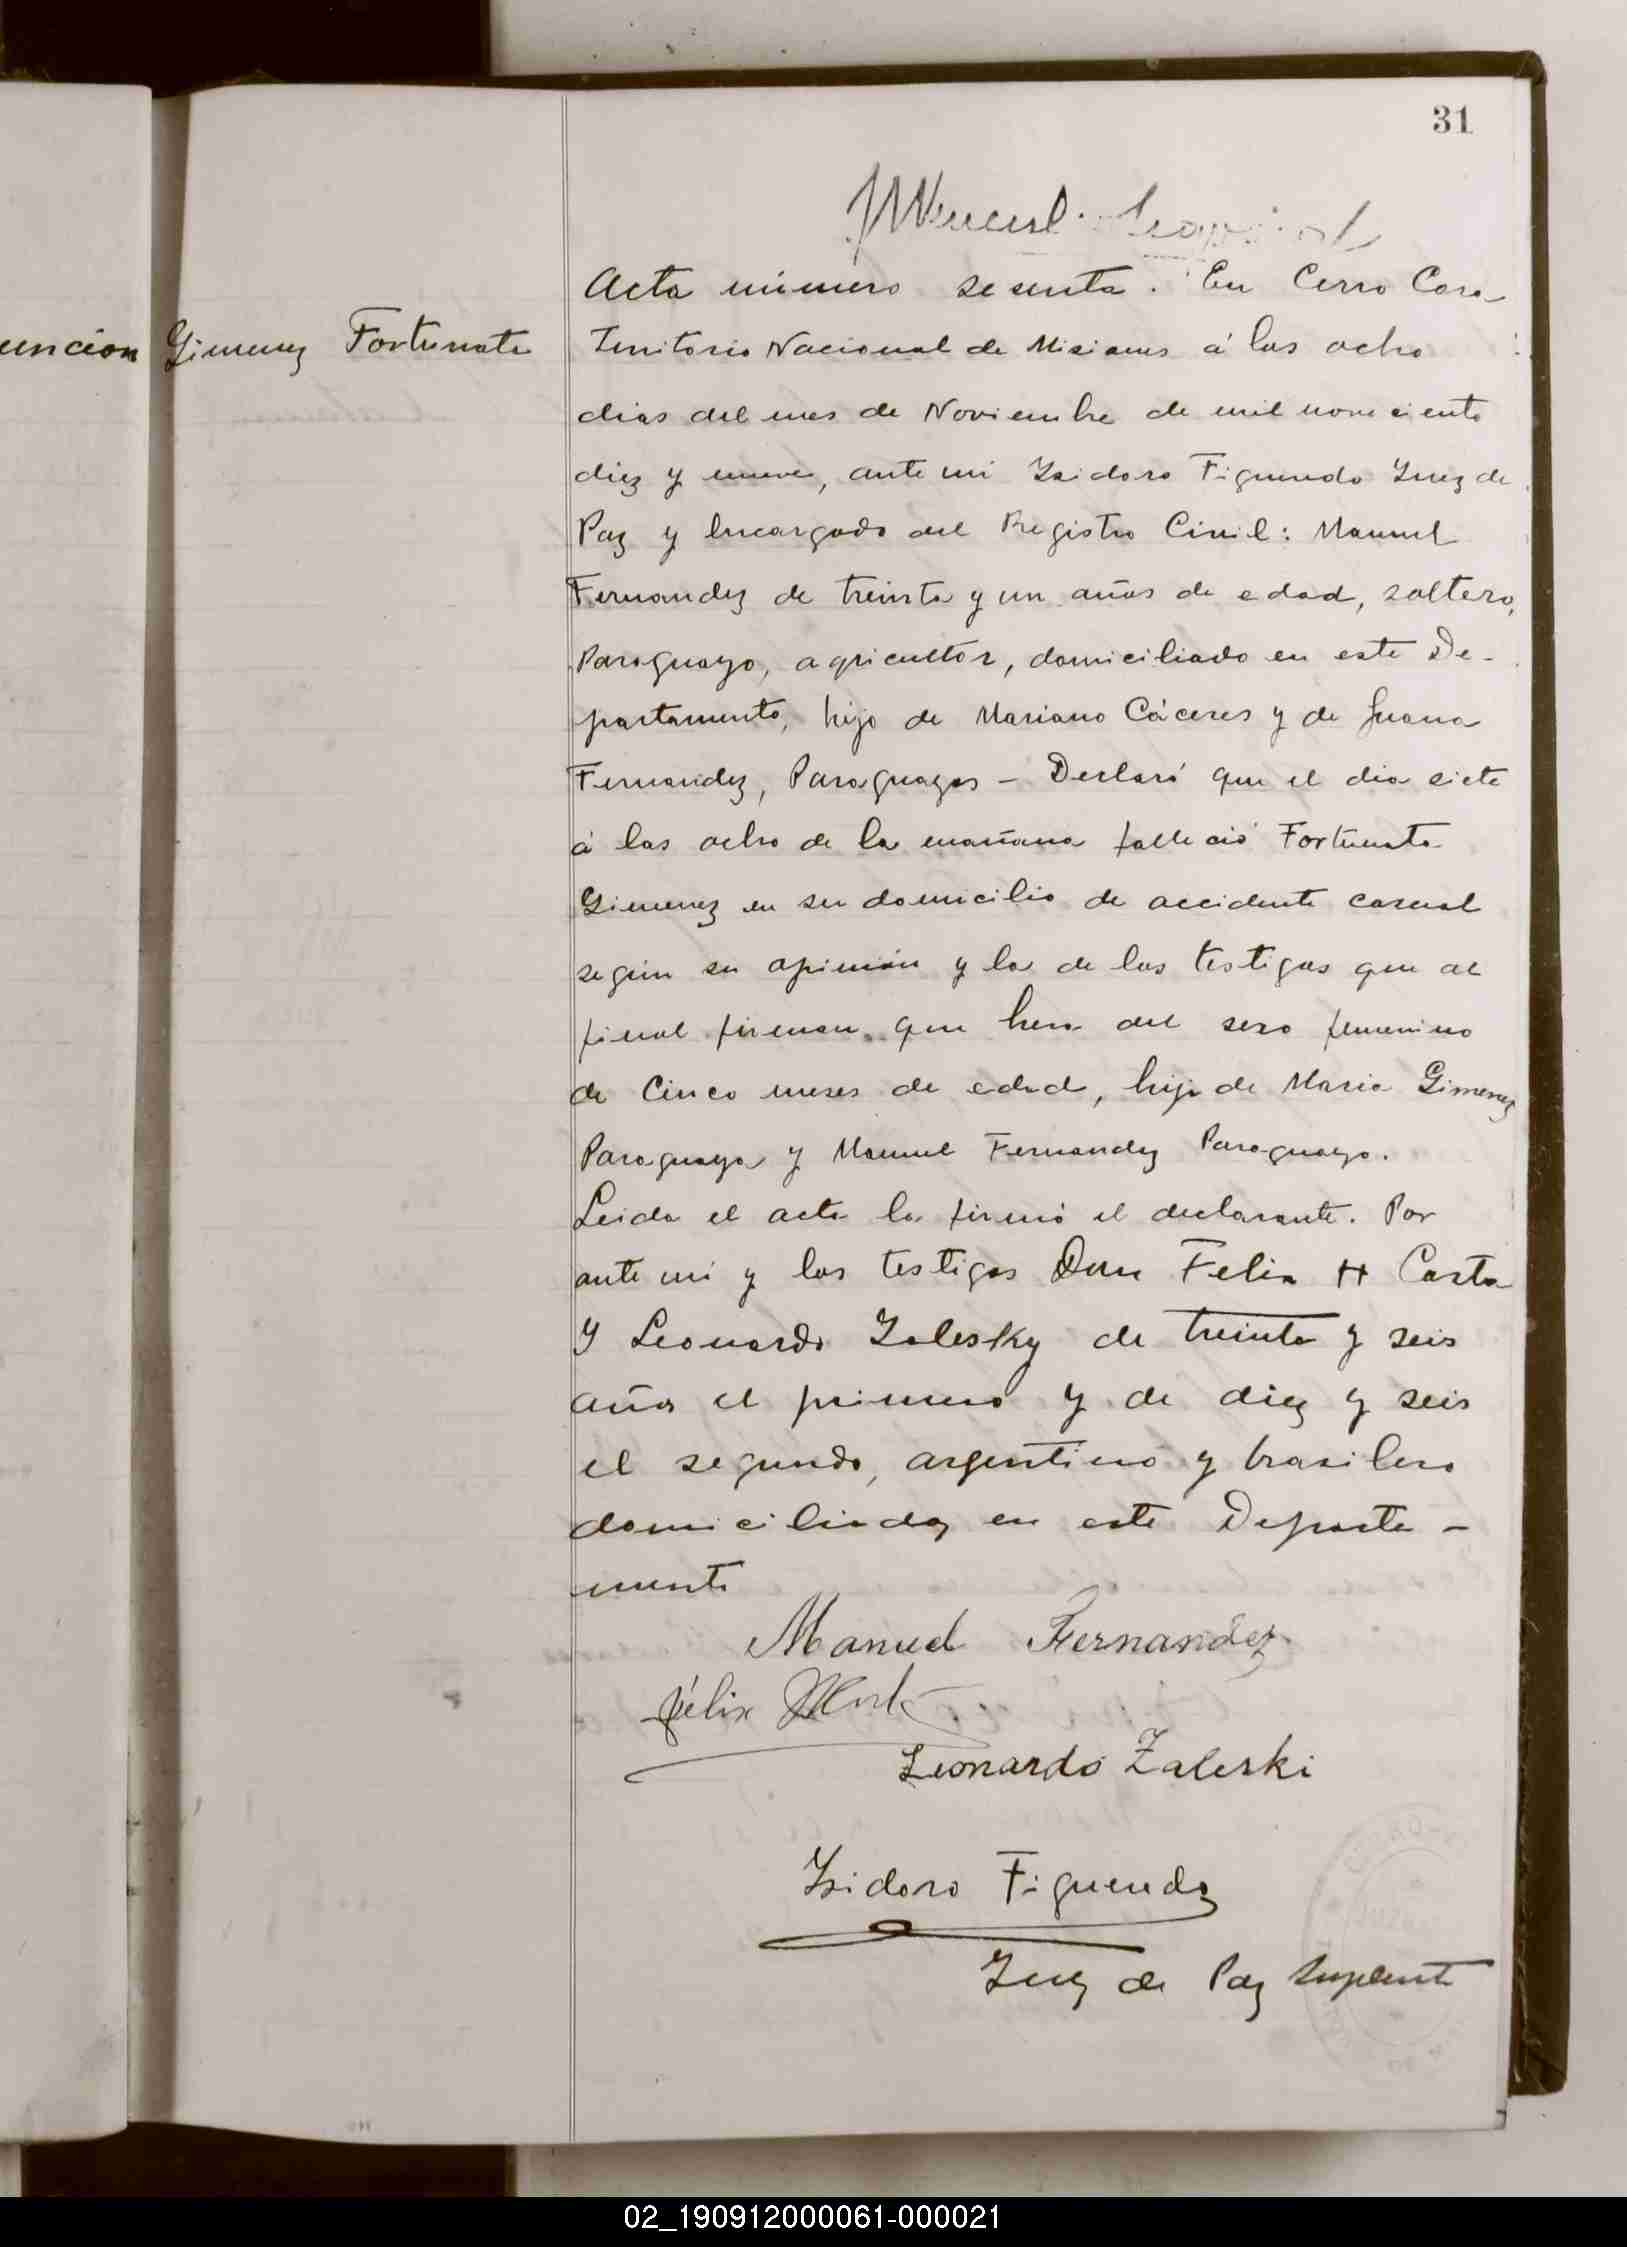 31
Acta número sesenta. En Cerro Cora
Territorio Nacional de Misiones á los ocho
uncion Gimenez Fortunata
dias del mes de Noviembre de mil noveciento
diez y nueve, ante mi Isidoro Figueredo Juez de
Paz y Encargado del Registro Civil: Manuel
Fernandez de treinta y un años de edad, soltero,
Paraguayo, agricultor, domiciliado en este De-
partamento, hijo de Mariano Cáceres y de Juana
Fernandez, Paraguayos – Declaró que el dia siete
á las ocho de la mañana falleció Fortunata
Gimenez en su domicilio de accidente casual
según su opinión y la de los testigos que al
final firman que hera del sexo femenino
de Cinco meses de edad, hija de Maria Gimenez
Paraguaya y Manuel Fernandez Paraguayo.
Leida el acta la firmó el declarante. Por
ante mi y los testigos Don Felix H Costa
y Leonardo Zalesky de treinta y seis
años el primero y de diez y seis
el segundo, argentino y brasilero
domiciliados en este Departa-
mento
Manuel Fernandez
Félix
Leonardo Zaleski
Isidoro Figueredo
Juez de Paz Suplente
02_190912000061-000021